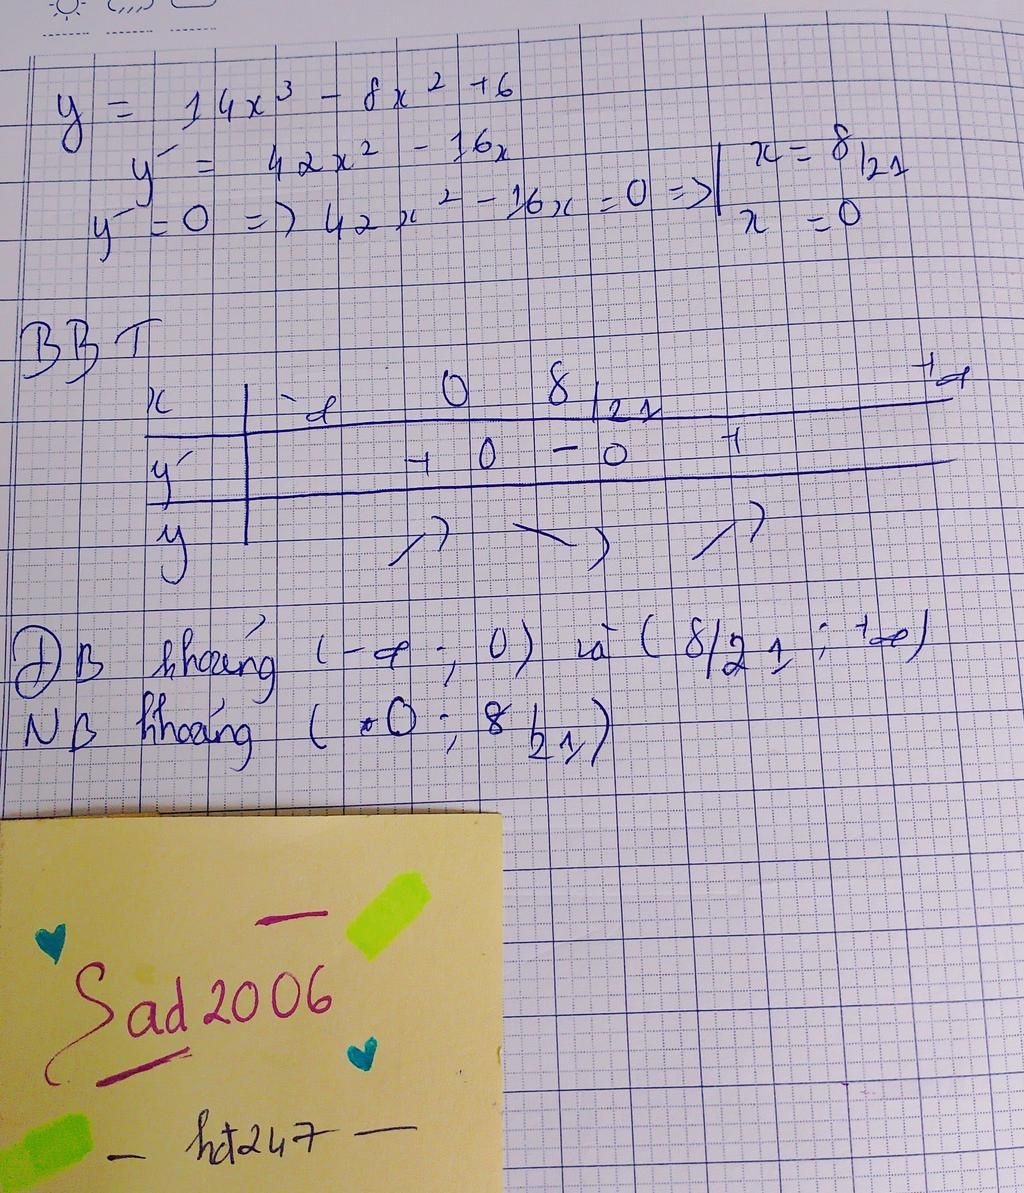 y = 14x³ - 8x² + 6
y' = 42x² - 16x
y' = 0 => 42x² - 16x = 0 => | x = 8/21
x = 0
BBT
x | -∞ 0 8/21 +∞
y' | + 0 - 0 +
y | ↗ ↘ ↗
ĐB khoảng (-∞; 0) và (8/21; +∞)
NB khoảng (0; 8/21)
Sad2006
- hđt247 -